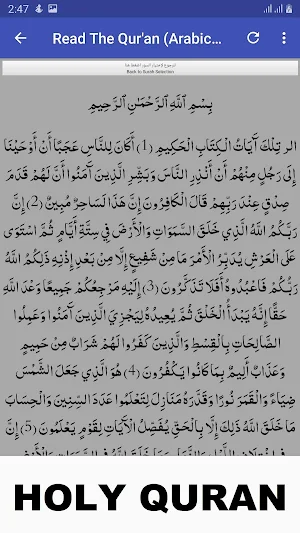 2:47
Read The Qur'an (Arabic...
Back to Surah Selection
بِسْمِ اللَّهِ الرَّحْمَٰنِ الرَّحِيمِ
الر تِلْكَ آيَاتُ الْكِتَابِ الْحَكِيمِ (1) أَكَانَ لِلنَّاسِ عَجَبًا أَنْ أَوْحَيْنَا
إِلَى رَجُلٍ مِنْهُمْ أَنْ أَنْذِرِ النَّاسَ وَبَشِّرِ الَّذِينَ آمَنُوا أَنَّ لَهُمْ قَدَمَ
صِدْقٍ عِنْدَ رَبِّهِمْ قَالَ الْكَافِرُونَ إِنَّ هَذَا لَسَاحِرٌ مُبِينٌ (2) إِنَّ
رَبَّكُمُ اللَّهُ الَّذِي خَلَقَ السَّمَوَاتِ وَالْأَرْضَ فِي سِتَّةِ أَيَّامٍ ثُمَّ اسْتَوَى
عَلَى الْعَرْشِ يُدَبِّرُ الْأَمْرَ مَا مِنْ شَفِيعٍ إِلَّا مِنْ بَعْدِ إِذْنِهِ ذَلِكُمُ اللَّهُ
رَبُّكُمْ فَاعْبُدُوهُ أَفَلَا تَذَكَّرُونَ (3) إِلَيْهِ مَرْجِعُكُمْ جَمِيعًا وَعْدَ اللَّهِ
حَقًّا إِنَّهُ يَبْدَأُ الْخَلْقَ ثُمَّ يُعِيدُهُ لِيَجْزِيَ الَّذِينَ آمَنُوا وَعَمِلُوا
الصَّالِحَاتِ بِالْقِسْطِ وَالَّذِينَ كَفَرُوا لَهُمْ شَرَابٌ مِنْ حَمِيمٍ
وَعَذَابٌ أَلِيمٌ بِمَا كَانُوا يَكْفُرُونَ (4) هُوَ الَّذِي جَعَلَ الشَّمْسَ
ضِيَاءً وَالْقَمَرَ نُورًا وَقَدَّرَهُ مَنَازِلَ لِتَعْلَمُوا عَدَدَ السِّنِينَ وَالْحِسَابَ
مَا خَلَقَ اللَّهُ ذَلِكَ إِلَّا بِالْحَقِّ يُفَصِّلُ الْآيَاتِ لِقَوْمٍ يَعْلَمُونَ (5) إِنَّ
HOLY QURAN